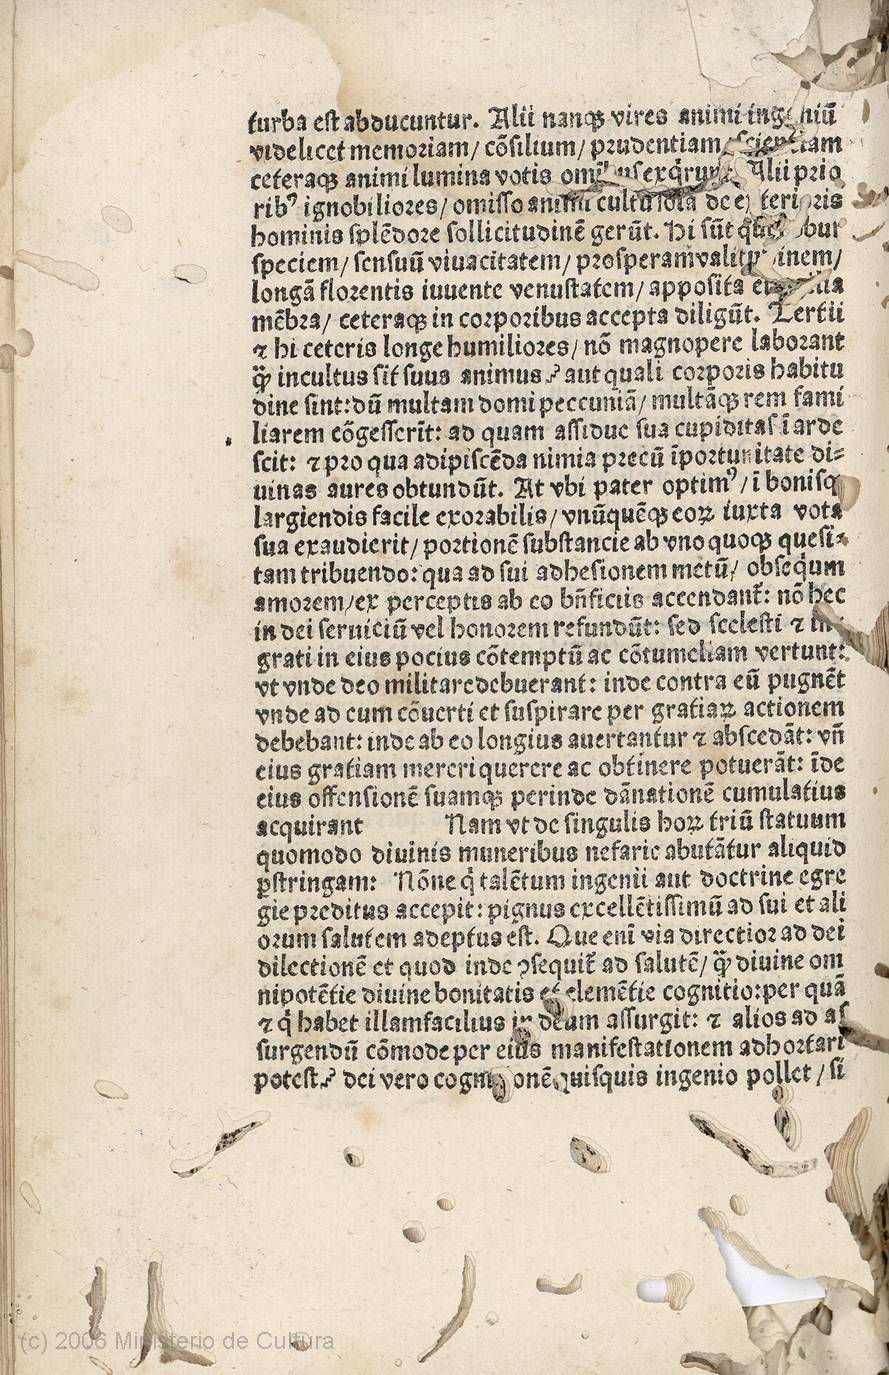 turba est abducuntur. Alii nanqꝫ vires animi ingeniū
videlicet memoriam/ cōsilium/ prudentiam/ scientiam
ceteraqꝫ animi lumina votis exq̄runt. Alii prio
ribꝰ ignobiliores/ omisso animi
hominis splēdore sollicitudinē gerūt. Hi sūt
speciem/ sensuū viuacitatem/ prosperam
longā florentis iuuente venustatem/ apposita
mēbra/ ceteraqꝫ in corporibus accepta diligūt. Tertii
⁊ hi ceteris longe humiliores/ nō magnopere laborant
ꝙ̄ incultus sit suus animus: aut quali corporis habitu
dine sint: dū multam domi peccuniā/ multāqꝫ rem fami
liarem cōgesserīt: ad quam assidue sua cupiditas īarde
scit: ⁊ pro qua adipiscēda nimia precū īportunitate di⸗
uinas aures obtundūt. At vbi pater optimꝰ/ ī bonisqꝫ
largiendis facile exorabilis/ vnūquēqꝫ eoꝝ iuxta vota
sua exaudierit/ portionē substancie ab vno quoqꝫ quesi⸗
tam tribuendo: qua ad sui adhesionem metū/ obseq̄um
amorem/ ex perceptis ab eo bn̄ficiis accendant̄: nō hec
in dei seruiciū vel honorem refundūt: sed scelesti ⁊ in
grati in eius pocius cōtemptū ac cōtumeliam vertunt:
vt vnde deo militare debuerant: inde contra eū pugnēt
vnde ad eum cōuerti et suspirare per gratiaꝝ actionem
debebant: inde ab eo longius auertantur ⁊ abscedāt: vn̄
eius gratiam mereri querere ac obtinere potuerāt: īde
eius offensionē suamqꝫ perinde dānationē cumulatius
acquirant Nam vt de singulis hoꝝ triū statuum
quomodo diuinis muneribus nefarie abutātur aliquid
ꝑstringam: Nōne q̄ talētum ingenii aut doctrine egre
gie preditus accepit: pignus excellētissimū ad sui et ali
orum salutem adeptus est. Que enī via directior ad dei
dilectionē et quod inde ꝯsequit̄ ad salutē/ ꝙ̄ diuine om
nipotētie diuine bonitatis et clemētie cognitio: per quā
⁊ q̄ habet illam facilius in deum assurgit: ⁊ alios ad as
surgendū cōmode per eius manifestationem adhortari
potest: dei vero cognitionē quisquis ingenio pollet/ si
(c) 2006 Ministerio de Cultura